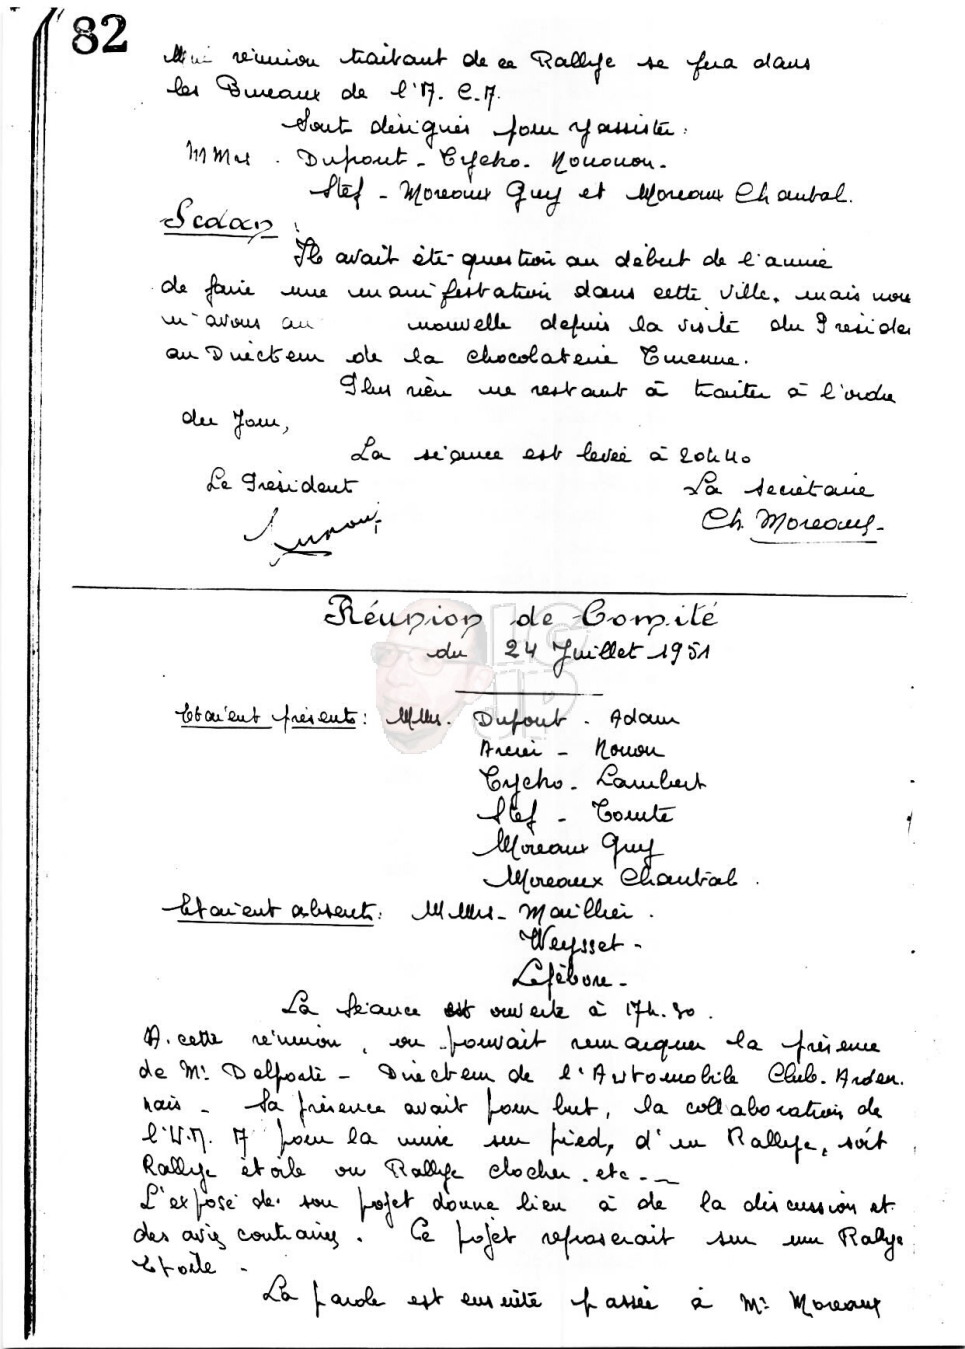 82
Une réunion traitant de ce Rallye se fera dans
les Bureaux de l'A.C.A.
Sont désignés pour y assister:
MMrs. Dupont - Tycho - Nouvion -
Stef - Moreaux Guy et Moreaux Chantal.
Sedan:
Il avait été question au début de l'année
de faire une manifestation dans cette ville, mais nous
n'avons au nouvelle depuis la visite du Présiden
au Directeur de la chocolaterie Turenne.
Plus rien ne restant à traiter à l'ordre
du Jour,
La séance est levée à 20h40
Le Président La secrétaire
Ch. Moreaux -
Réunion de Comité
du 24 Juillet 1951
Etaient présents: MMrs. Dupont. Adam
- Nouon
Tycho - Lambert
Stef - Comte
Moreaux Guy
Moreaux Chantal.
Etaient absents: MMrs - Maillier.
Weysset -
Lefèbvre -
La séance est ouverte à 17h.30.
A cette réunion, on pouvait remarquer la présence
de Mr Delporte - Directeur de l'Automobile Club. Arden.
nais - Sa présence avait pour but, la collaboration de
l'U.M.A pour la mise sur pied, d'un Rallye, soit
Rallye étoile ou Rallye clocher. etc -
L'exposé de son pojet donne lieu à de la discussion et
des avis contraires. Ce pojet reposerait sur un Ralye
Etoile -
La parole est ensuite passée à Mr Moreaux
LG
JP